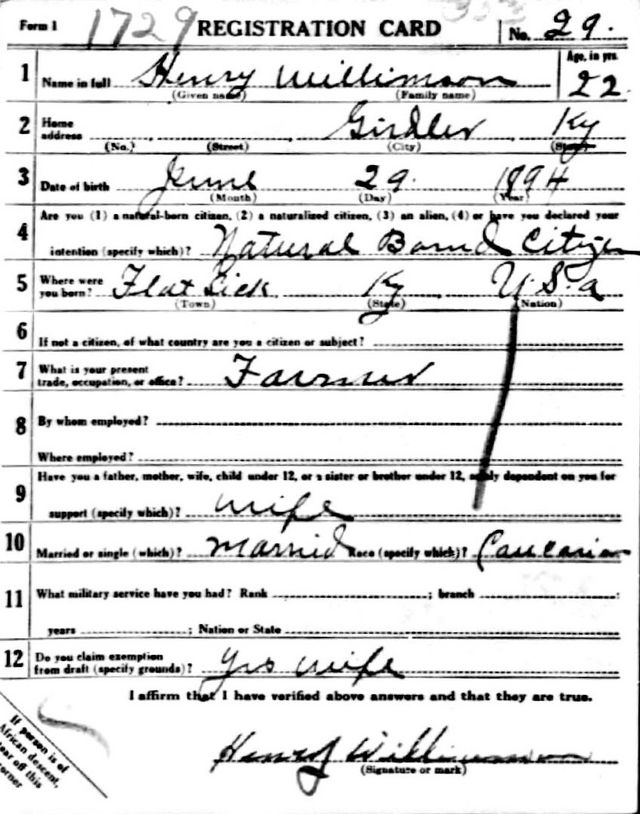 Form 1 1729 REGISTRATION CARD No. 29.
1 Name in full Henry Willimson Age, in yrs. 22
(Given name) (Family name)
2 Home address Girdler Ky
(No.) (Street) (City) (State)
3 Date of birth June 29. 1894
(Month) (Day) (Year)
4 Are you (1) a natural-born citizen, (2) a naturalized citizen, (3) an alien, (4) or have you declared your
intention (specify which)? Natural Bornd Citizen
5 Where were you born? Flat Lick Ky U.S.a
(Town) (State) (Nation)
6 If not a citizen, of what country are you a citizen or subject?
7 What is your present trade, occupation, or office? Farmer
8 By whom employed?
Where employed?
9 Have you a father, mother, wife, child under 12, or a sister or brother under 12, solely dependent on you for
support (specify which)? wife
10 Married or single (which)? Married Race (specify which)? Caucasian
11 What military service have you had? Rank ; branch ;
years ; Nation or State
12 Do you claim exemption from draft (specify grounds)? Yes wife
I affirm that I have verified above answers and that they are true.
Henry Willimson
(Signature or mark)
If person is of
African descent,
tear off this
corner